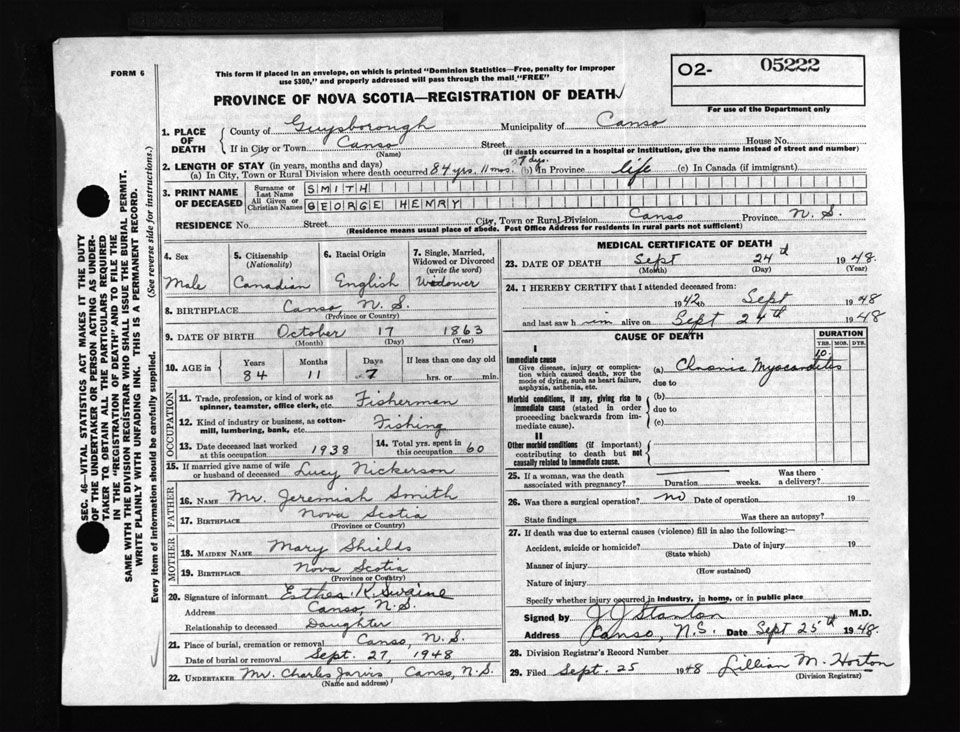 FORM 6
This form if placed in an envelope, on which is printed "Dominion Statistics—Free, penalty for improper
use $300," and properly addressed will pass through the mail "FREE"
PROVINCE OF NOVA SCOTIA—REGISTRATION OF DEATH
O2- 05222
For use of the Department only
1. PLACE OF DEATH
County of Guysborough Municipality of Canso
If in City or Town Canso Street House No.
(Name) (If death occurred in a hospital or institution, give the name instead of street and number)
2. LENGTH OF STAY (in years, months and days)
(a) In City, Town or Rural Division where death occurred 84 yrs. 11 mos. 7 dys. (b) In Province life (c) In Canada (if immigrant)
3. PRINT NAME OF DECEASED
Surname or Last Name SMITH
All Given or Christian Names GEORGE HENRY
RESIDENCE No. Street City, Town or Rural Division Canso Province N.S.
(Residence means usual place of abode. Post Office Address for residents in rural parts not sufficient)
4. Sex
Male
5. Citizenship (Nationality)
Canadian
6. Racial Origin
English
7. Single, Married, Widowed or Divorced (write the word)
Widower
8. BIRTHPLACE Canso N.S.
(Province or Country)
9. DATE OF BIRTH October 17 1863
(Month) (Day) (Year)
10. AGE in
Years Months Days If less than one day old
84 11 7 hrs. or min.
OCCUPATION
11. Trade, profession, or kind of work as
spinner, teamster, office clerk, etc. Fisherman
12. Kind of industry or business, as cotton-
mill, lumbering, bank, etc. Fishing
13. Date deceased last worked at this occupation 1938
14. Total yrs. spent in this occupation 60
15. If married give name of wife
or husband of deceased Lucy Nickerson
FATHER
16. NAME Mr. Jeremiah Smith
17. BIRTHPLACE Nova Scotia
(Province or Country)
MOTHER
18. MAIDEN NAME Mary Shields
19. BIRTHPLACE Nova Scotia
(Province or Country)
20. Signature of informant Esther K. Swaine
Address Canso, N.S.
Relationship to deceased Daughter
21. Place of burial, cremation or removal Canso, N.S.
Date of burial or removal Sept. 27, 1948
22. UNDERTAKER Mr. Charles Jarvis, Canso, N.S.
(Name and address)
MEDICAL CERTIFICATE OF DEATH
23. DATE OF DEATH Sept 24th 1948.
(Month) (Day) (Year)
24. I HEREBY CERTIFY that I attended deceased from:
1942 to Sept 1948
and last saw him alive on Sept 24th 1948
CAUSE OF DEATH
DURATION
YRS. MOS. DYS.
I
Immediate cause
Give disease, injury or complica-
tion which caused death, NOT the
mode of dying, such as heart failure,
asphyxia, asthenia, etc.
(a) Chronic Myocarditis 10
due to
Morbid conditions, if any, giving rise to
immediate cause (stated in order
proceeding backwards from im-
mediate cause).
(b)
due to
(c)
II
Other morbid conditions (if important)
contributing to death but not
causally related to immediate cause.
25. If a woman, was the death
associated with pregnancy? Duration weeks. Was there a delivery?
26. Was there a surgical operation? no Date of operation 19
State findings Was there an autopsy?
27. If death was due to external causes (violence) fill in also the following:—
Accident, suicide or homicide? Date of injury 19
(State which)
Manner of injury
(How sustained)
Nature of injury
Specify whether injury occurred in industry, in home, or in public place
Signed by J J Stanton M.D.
Address Canso, N.S. Date Sept 25th 1948.
28. Division Registrar's Record Number
29. Filed Sept. 25 1948 Lillian M. Horton
(Division Registrar)
SEC. 46—VITAL STATISTICS ACT MAKES IT THE DUTY
OF THE UNDERTAKER OR PERSON ACTING AS UNDER-
TAKER TO OBTAIN ALL THE PARTICULARS REQUIRED
IN THE "REGISTRATION OF DEATH" AND TO FILE THE
SAME WITH THE DIVISION REGISTRAR WHO SHALL ISSUE THE BURIAL PERMIT.
WRITE PLAINLY WITH UNFADING INK. THIS IS A PERMANENT RECORD.
Every item of information should be carefully supplied. (See reverse side for instructions.)